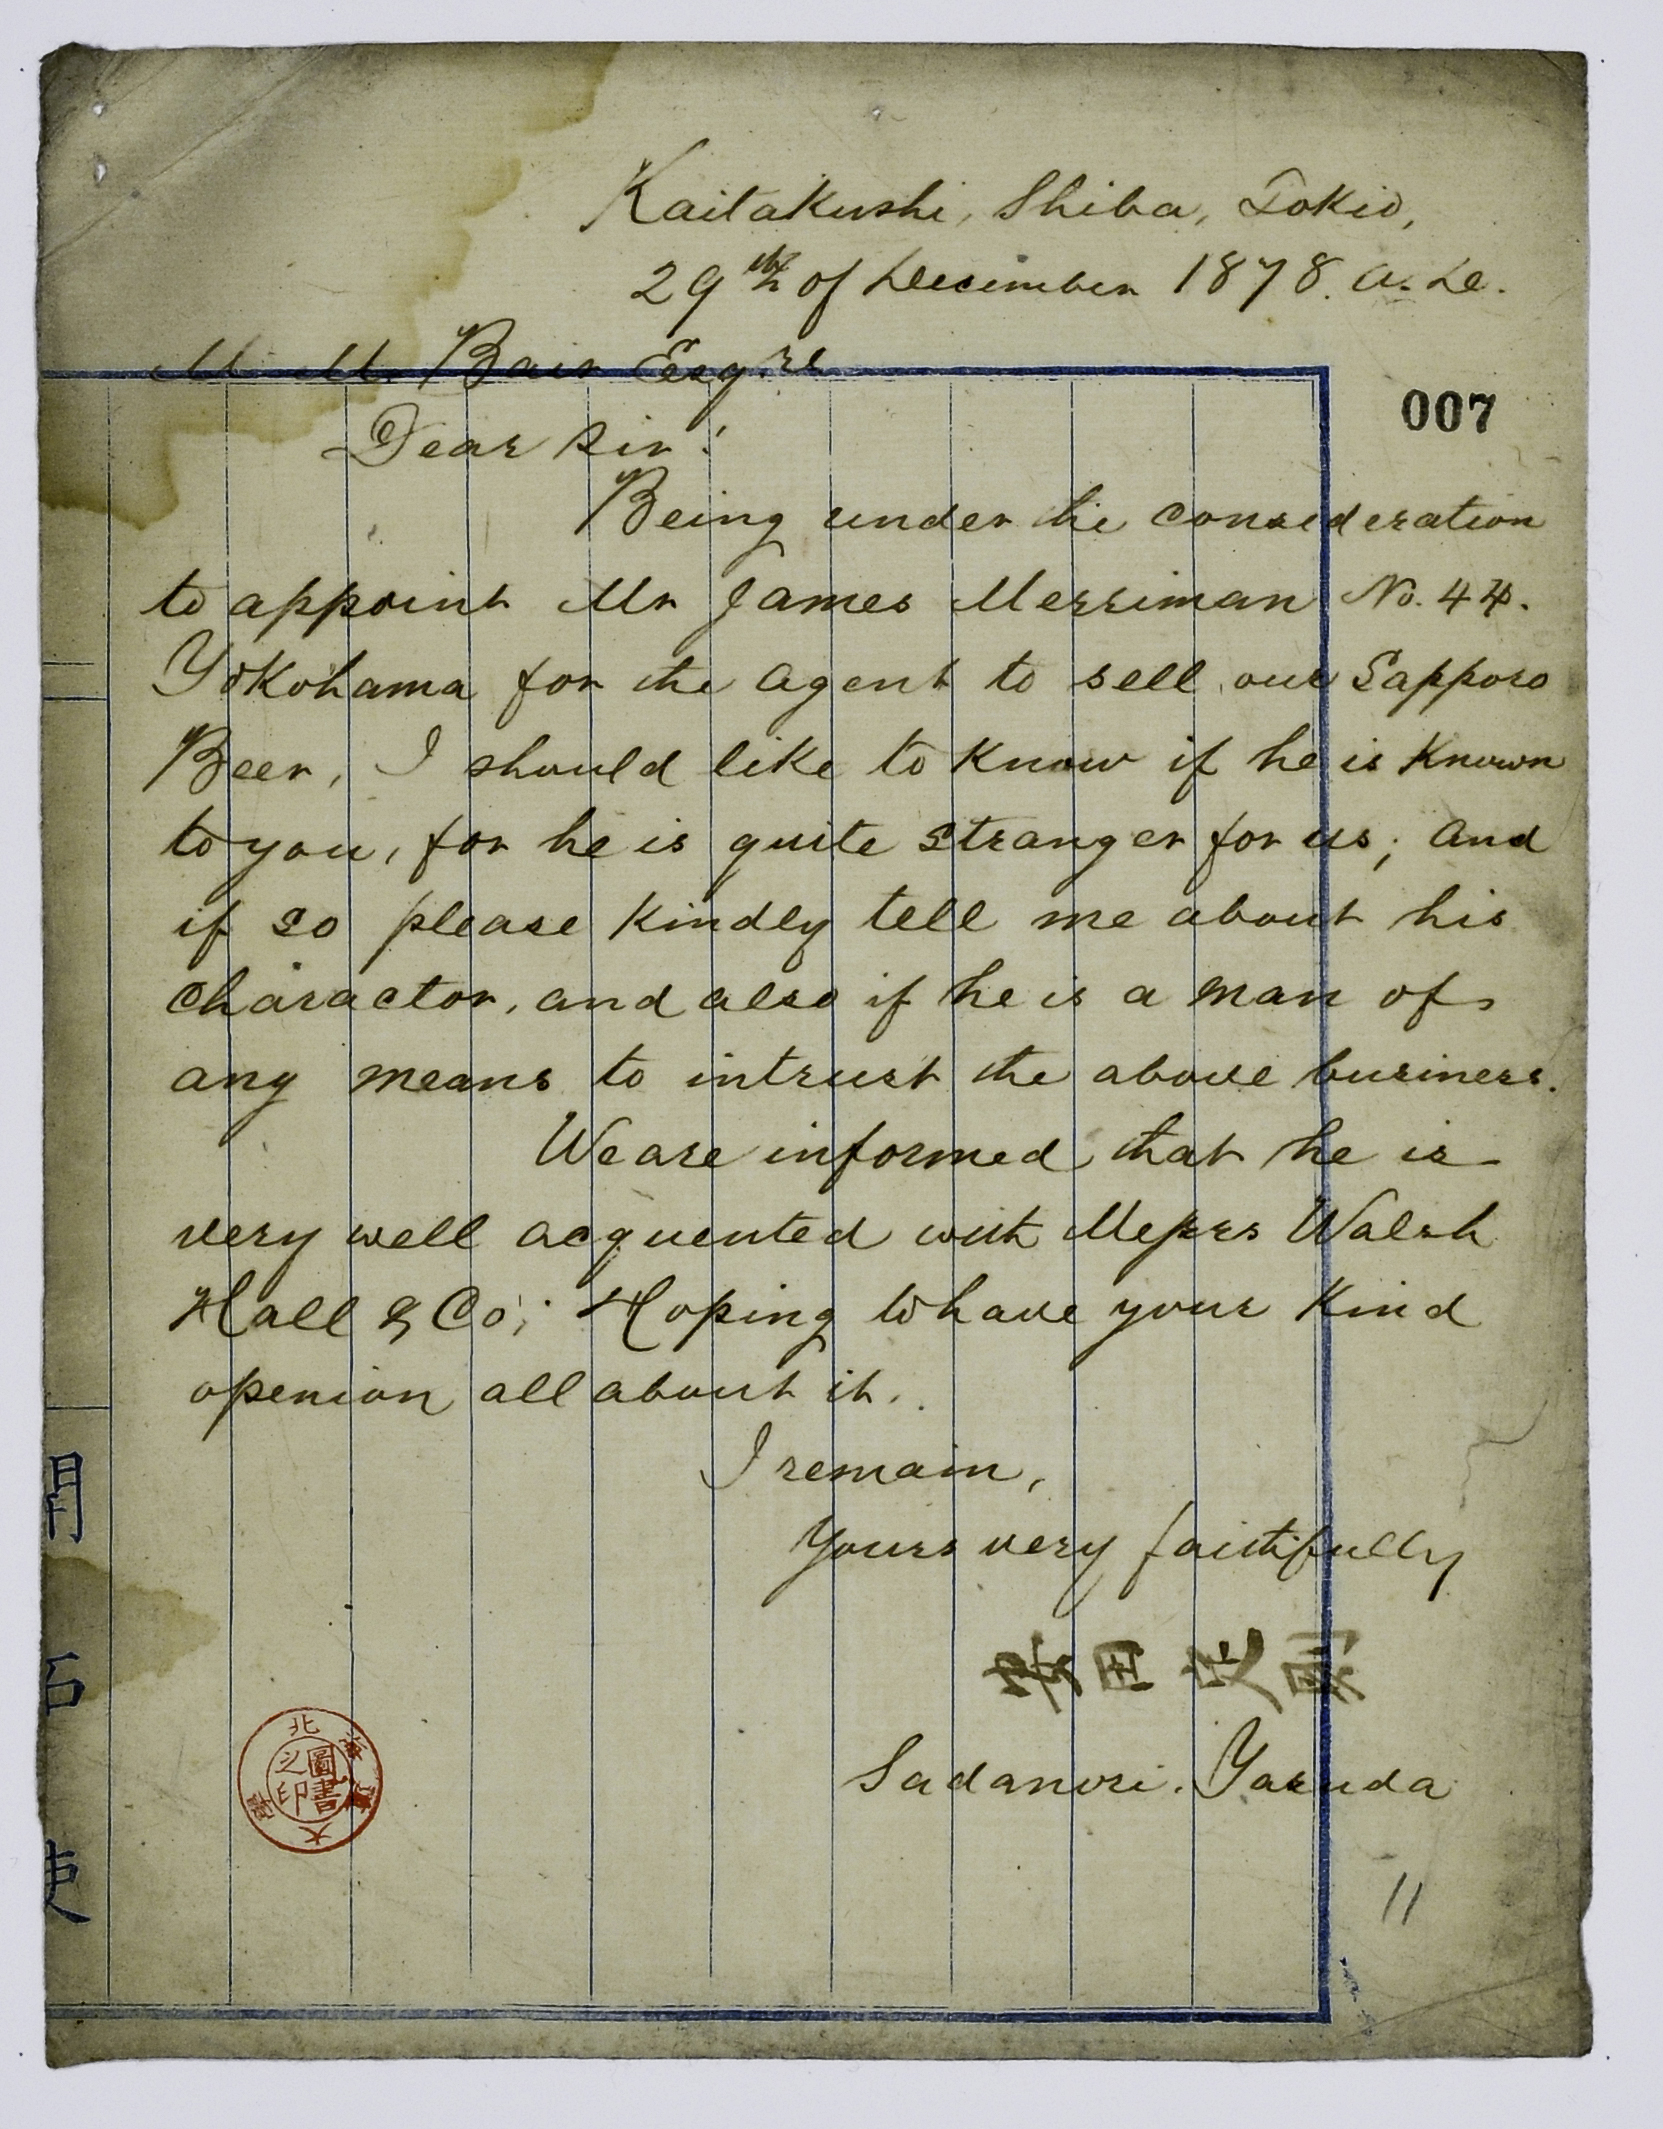 Kaitakushi, Shiba, Tokio,
29th of December 1878. A. De.
M. M. Bair Esqre
007
Dear Sir!
Being under the consideration
to appoint Mr James Merriman No. 44.
Yokohama for the agent to sell our Sapporo
Beer, I should like to know if he is known
to you, for he is quite stranger for us; and
if so please kindly tell me about his
charactor, and also if he is a man of
any means to intrust the above business.
We are informed that he is
very well acquented with Messrs Walsh
Hall & Co; Hoping to have your kind
openion all about it.
I remain,
Yours very faithfully
Sadanori. Yasuda
北海道大學
圖書之印
11